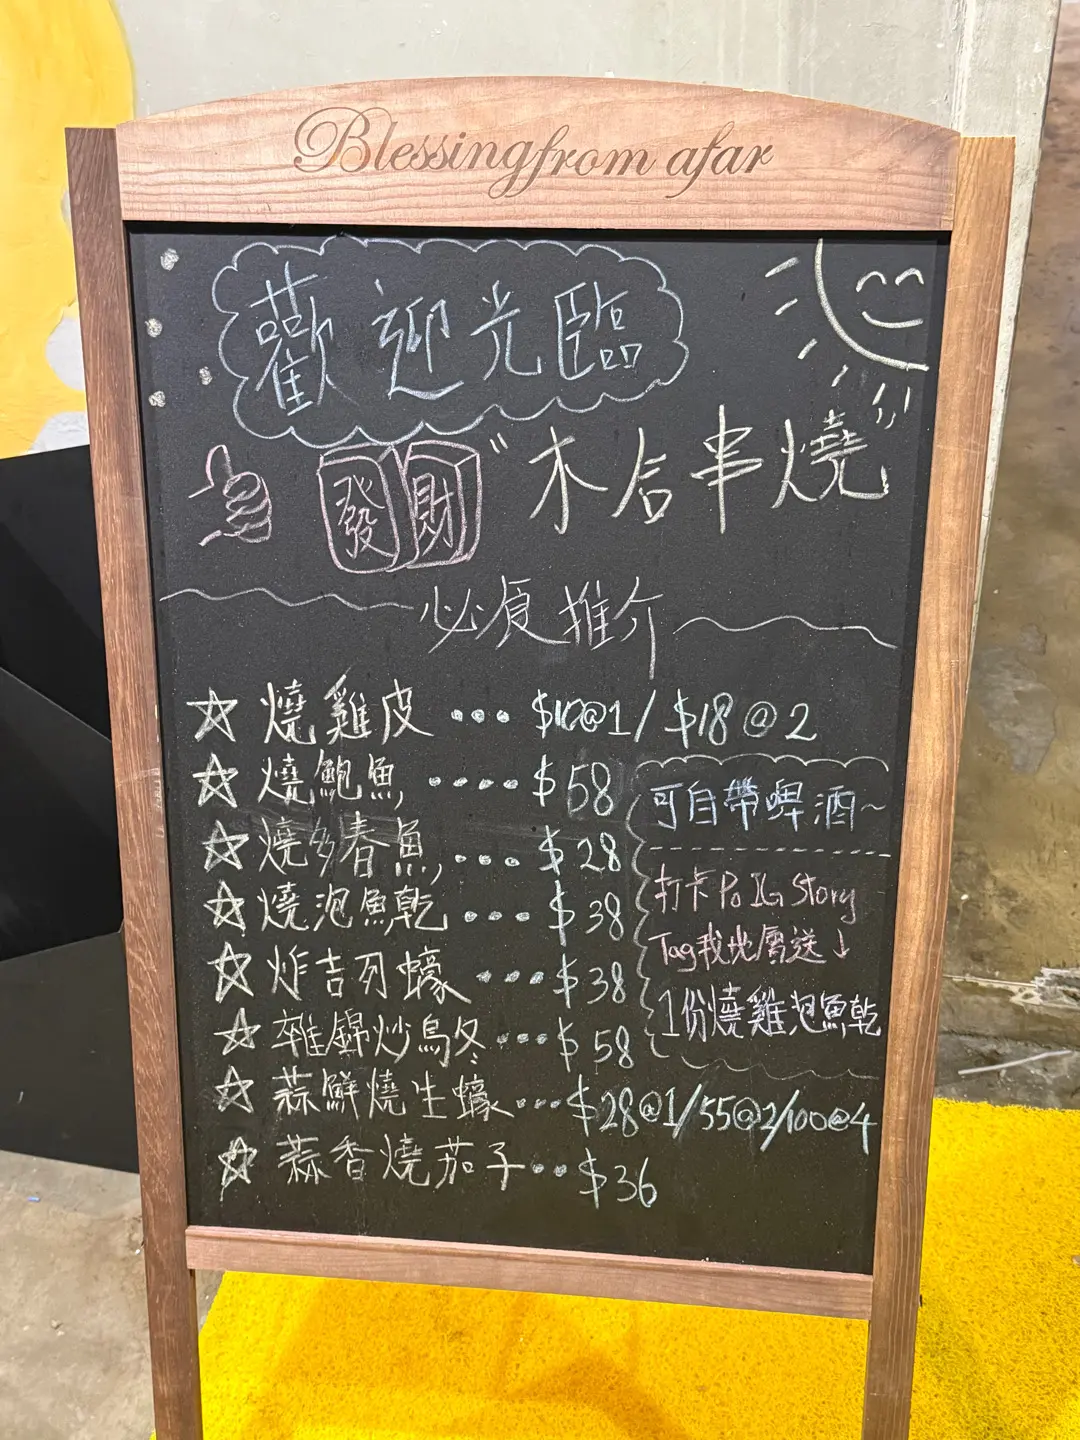 Blessing from afar
歡迎光臨
發財 "木后串燒"
必食推介
☆ 燒雞皮 ... $10@1 / $18@2
☆ 燒鮑魚 .... $58
☆ 燒多春魚 .... $28
☆ 燒泡魚乾 .... $38
☆ 炸吉列蠔 .... $38
☆ 雜錦炒烏冬 .... $58
☆ 蒜鮮燒生蠔 ... $28@1/55@2/100@4
☆ 蒜香燒茄子 .. $36
可自帶啤酒~
打卡Po IG Story
Tag我地會送↓
1份燒雞泡魚乾